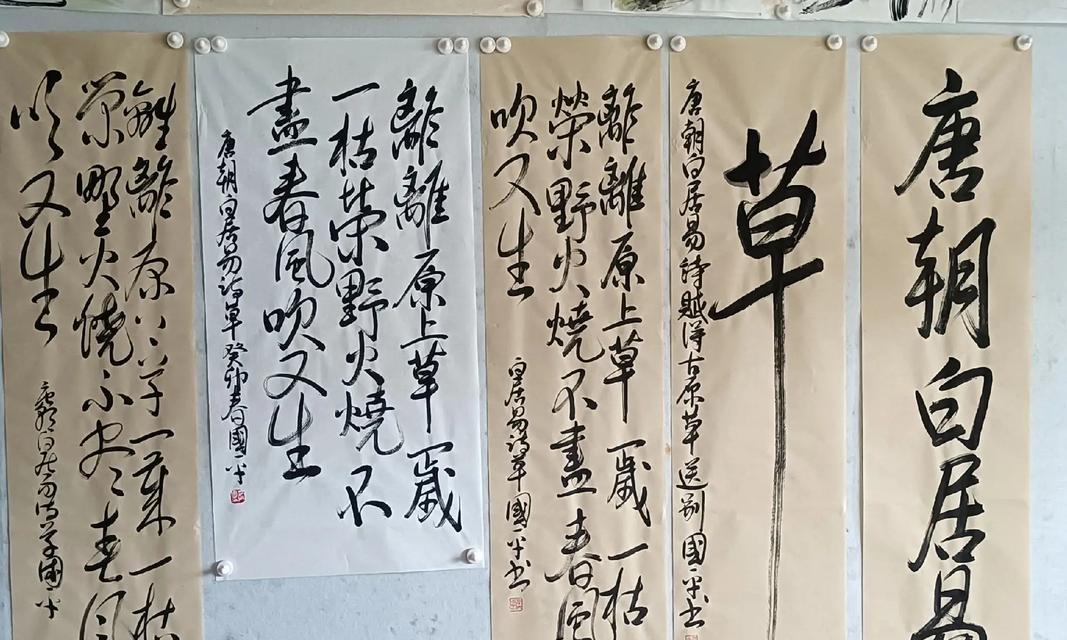 唐朝白居易
草
唐朝白居易诗賦得古原草送别 國平书
離離原上草一歲一枯
榮野火燒不盡春風
吹又生
白居易诗草國平书
離離原上草一歲
一枯榮野火燒不
盡春風吹又生
唐朝白居易诗草癸卯春國平
離離原上草一歲一枯
榮野火燒不尽春風
吹又生
唐朝白居易诗草國平